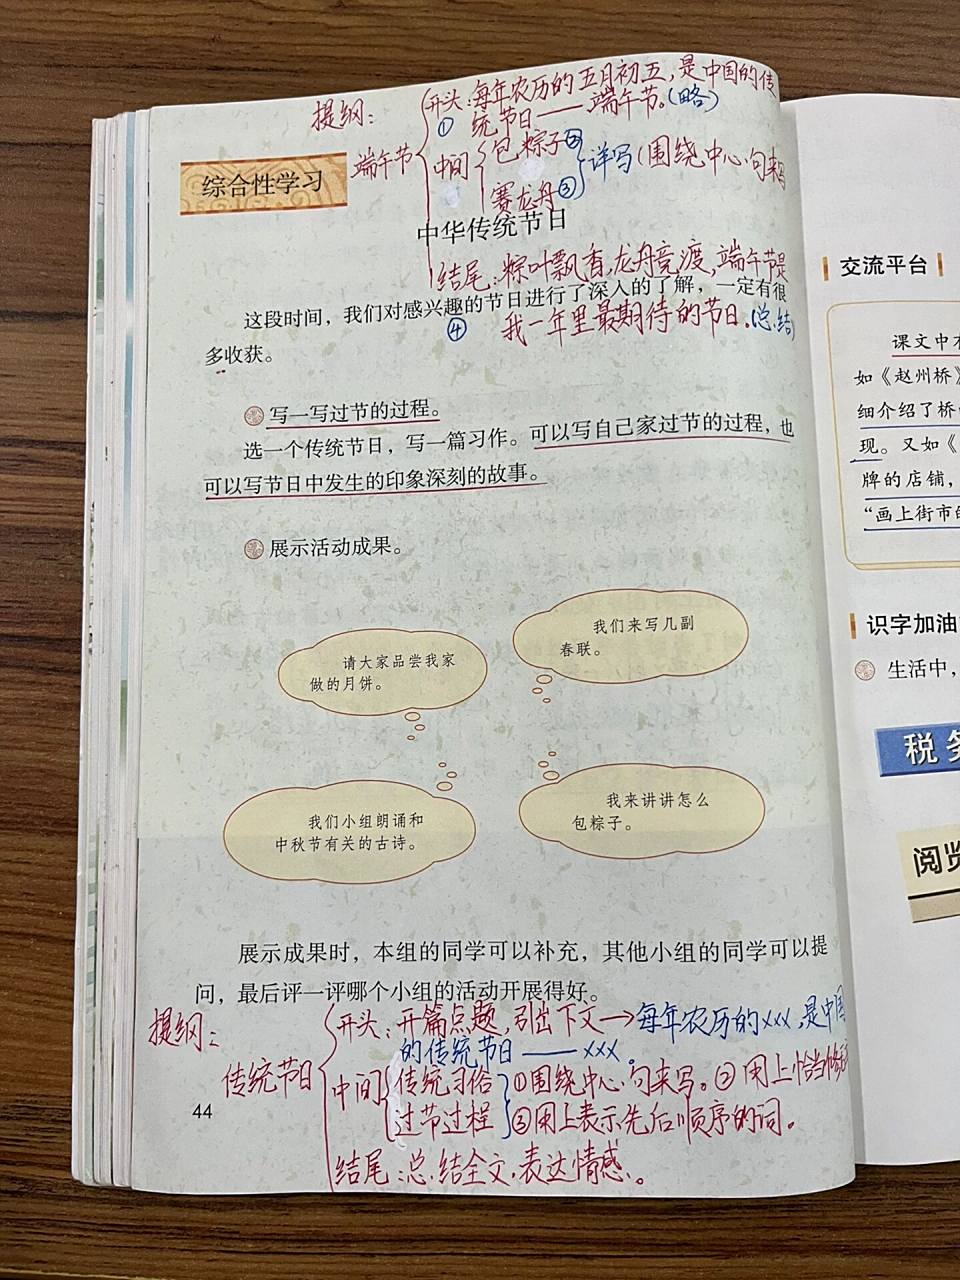 提纲：
端午节
开头：每年农历的五月初五，是中国的传
①
统节日——端午节。（略）
中间
包粽子②
赛龙舟③
详写（围绕中心句来写
综合性学习
中华传统节日
结尾：粽叶飘香，龙舟竞渡，端午节是
④
我一年里最期待的节日。（总结）
这段时间，我们对感兴趣的节日进行了深入的了解，一定有很
多收获。
写一写过节的过程。
选一个传统节日，写一篇习作。可以写自己家过节的过程，也
可以写节日中发生的印象深刻的故事。
展示活动成果。
请大家品尝我家
做的月饼。
我们来写几副
春联。
我们小组朗诵和
中秋节有关的古诗。
我来讲讲怎么
包粽子。
展示成果时，本组的同学可以补充，其他小组的同学可以提
问，最后评一评哪个小组的活动开展得好。
提纲：
传统节日
开头：开篇点题，引出下文→每年农历的xxx，是中国
的传统节日——xxx。
中间
传统习俗
过节过程
①围绕中心句来写。②用上恰当修
③用上表示先后顺序的词。
结尾：总结全文，表达情感。
44
交流平台
课文中
如《赵州桥》
细介绍了桥
现。又如《
牌的店铺，
“画上街市的
识字加油
生活中，
税务
阅览